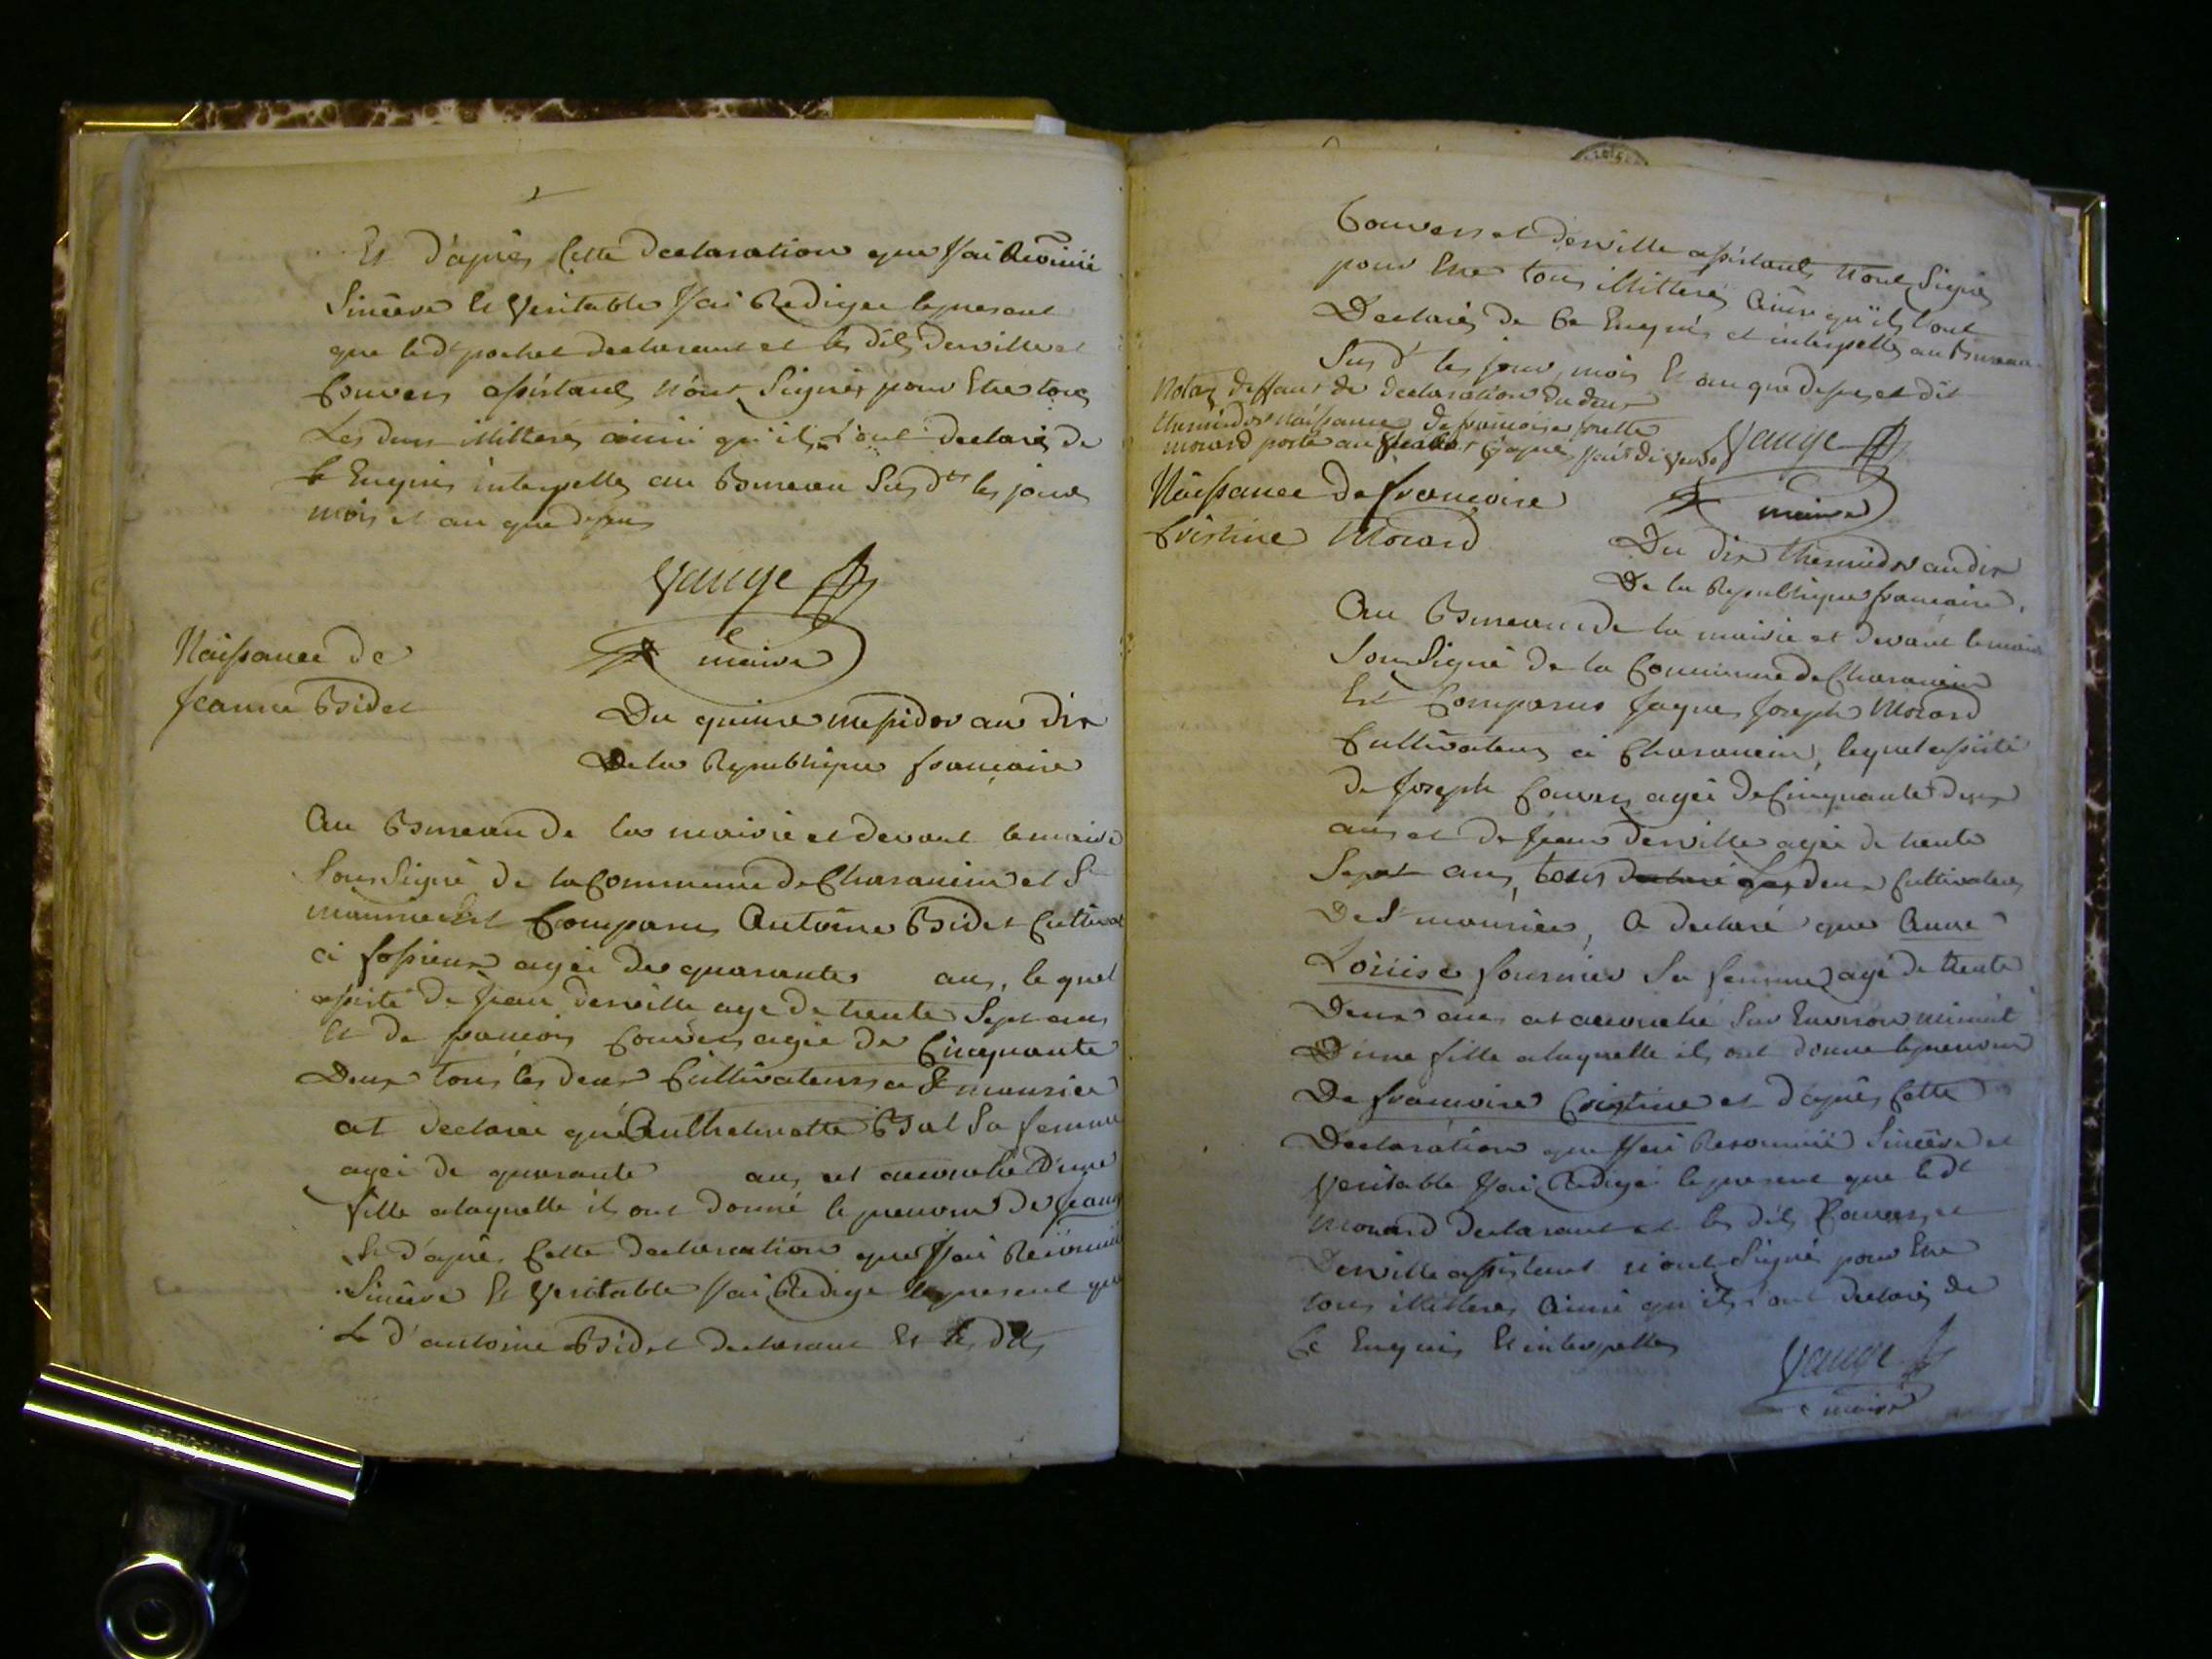 Et d'après Cette declaration que J'ai Reconnüe
Sincère et Veritable J'ai Redigée le present
que le dt pochet declarant et les dits derville et
Convers assistants n'ont Signés pour Etre tous
Les deux illitteres ainsi qu'ils L'ont declarés de
Ce Enquis interpellés au Bureau Susdts les jours
mois et an que dessus
Vauge
maire
Naissance de
Jeanne Bidet
Du quinze messidor an dix
De la Republique française
Au Bureau de la mairie et devant le maire
Sousigné de la Commune de Charancin et St
maurice Est Comparus Antoine Bidet Cultivat
a fossieux agée de quarante ans, le quel
assisté de jean derville age de trente Sept ans
Et de francois Convers agée de Cinquante
Deux tous les deux Cultivateurs a St maurice
at declarée que Anthelmette Bal Sa femme
agée de quarante ans et accouchée d'une
fille alaquelle ils ont donné le prenom de Jeanne
Et d'après Cette declaration que J'ai Reconnüe
Sincère Et Veritable J'ai Redigé le present que
Le dt antoine Bidet declarant Et les dits
Convers et derville assistants n'ont Signés
pour Etre tous illitterés Ainsi qu'ils l'ont
Declarés de Ce Enquis et interpellés au Bureau
Susdt les jour, mois Et an que dessus et dit
Nota deffaut de declaration du deux
thermidor naissance de francoise
morard porté au
Vauge
maire
Naissance de francoise
Cristine Morard
Du dix thermidor an dix
De la Republique francaise.
Au Bureau de la mairie et devant le maire
Sousigné de la Commune de Charancin
Est Comparus Jaque Joseph Morard
Cultivateur a Charancin, lequel assisté
de Joseph Convers agée de Cinquante deux
ans et de jean derville agée de trente
Sept ans, tous declaré les deux Cultivateurs
De St maurice, a declaré que Anne
Loüise fournier Sa femme agé de trente
Deux ans at accouchée Sur Environ minuit
D'une fille alaquelle ils ont donné le prenom
De francoise Cristine et d'après Cette
Declaration que J'ai Reconnuë Sincère et
Veritable J'ai Redigé le present que le dt
Morard declarant et les dits Convers et
Derville assistant n'ont Signé pour Etre
tous illitteres Ainsi qu'ils l'ont declarés de
Ce Enquis Et interpellés
Vauge
maire